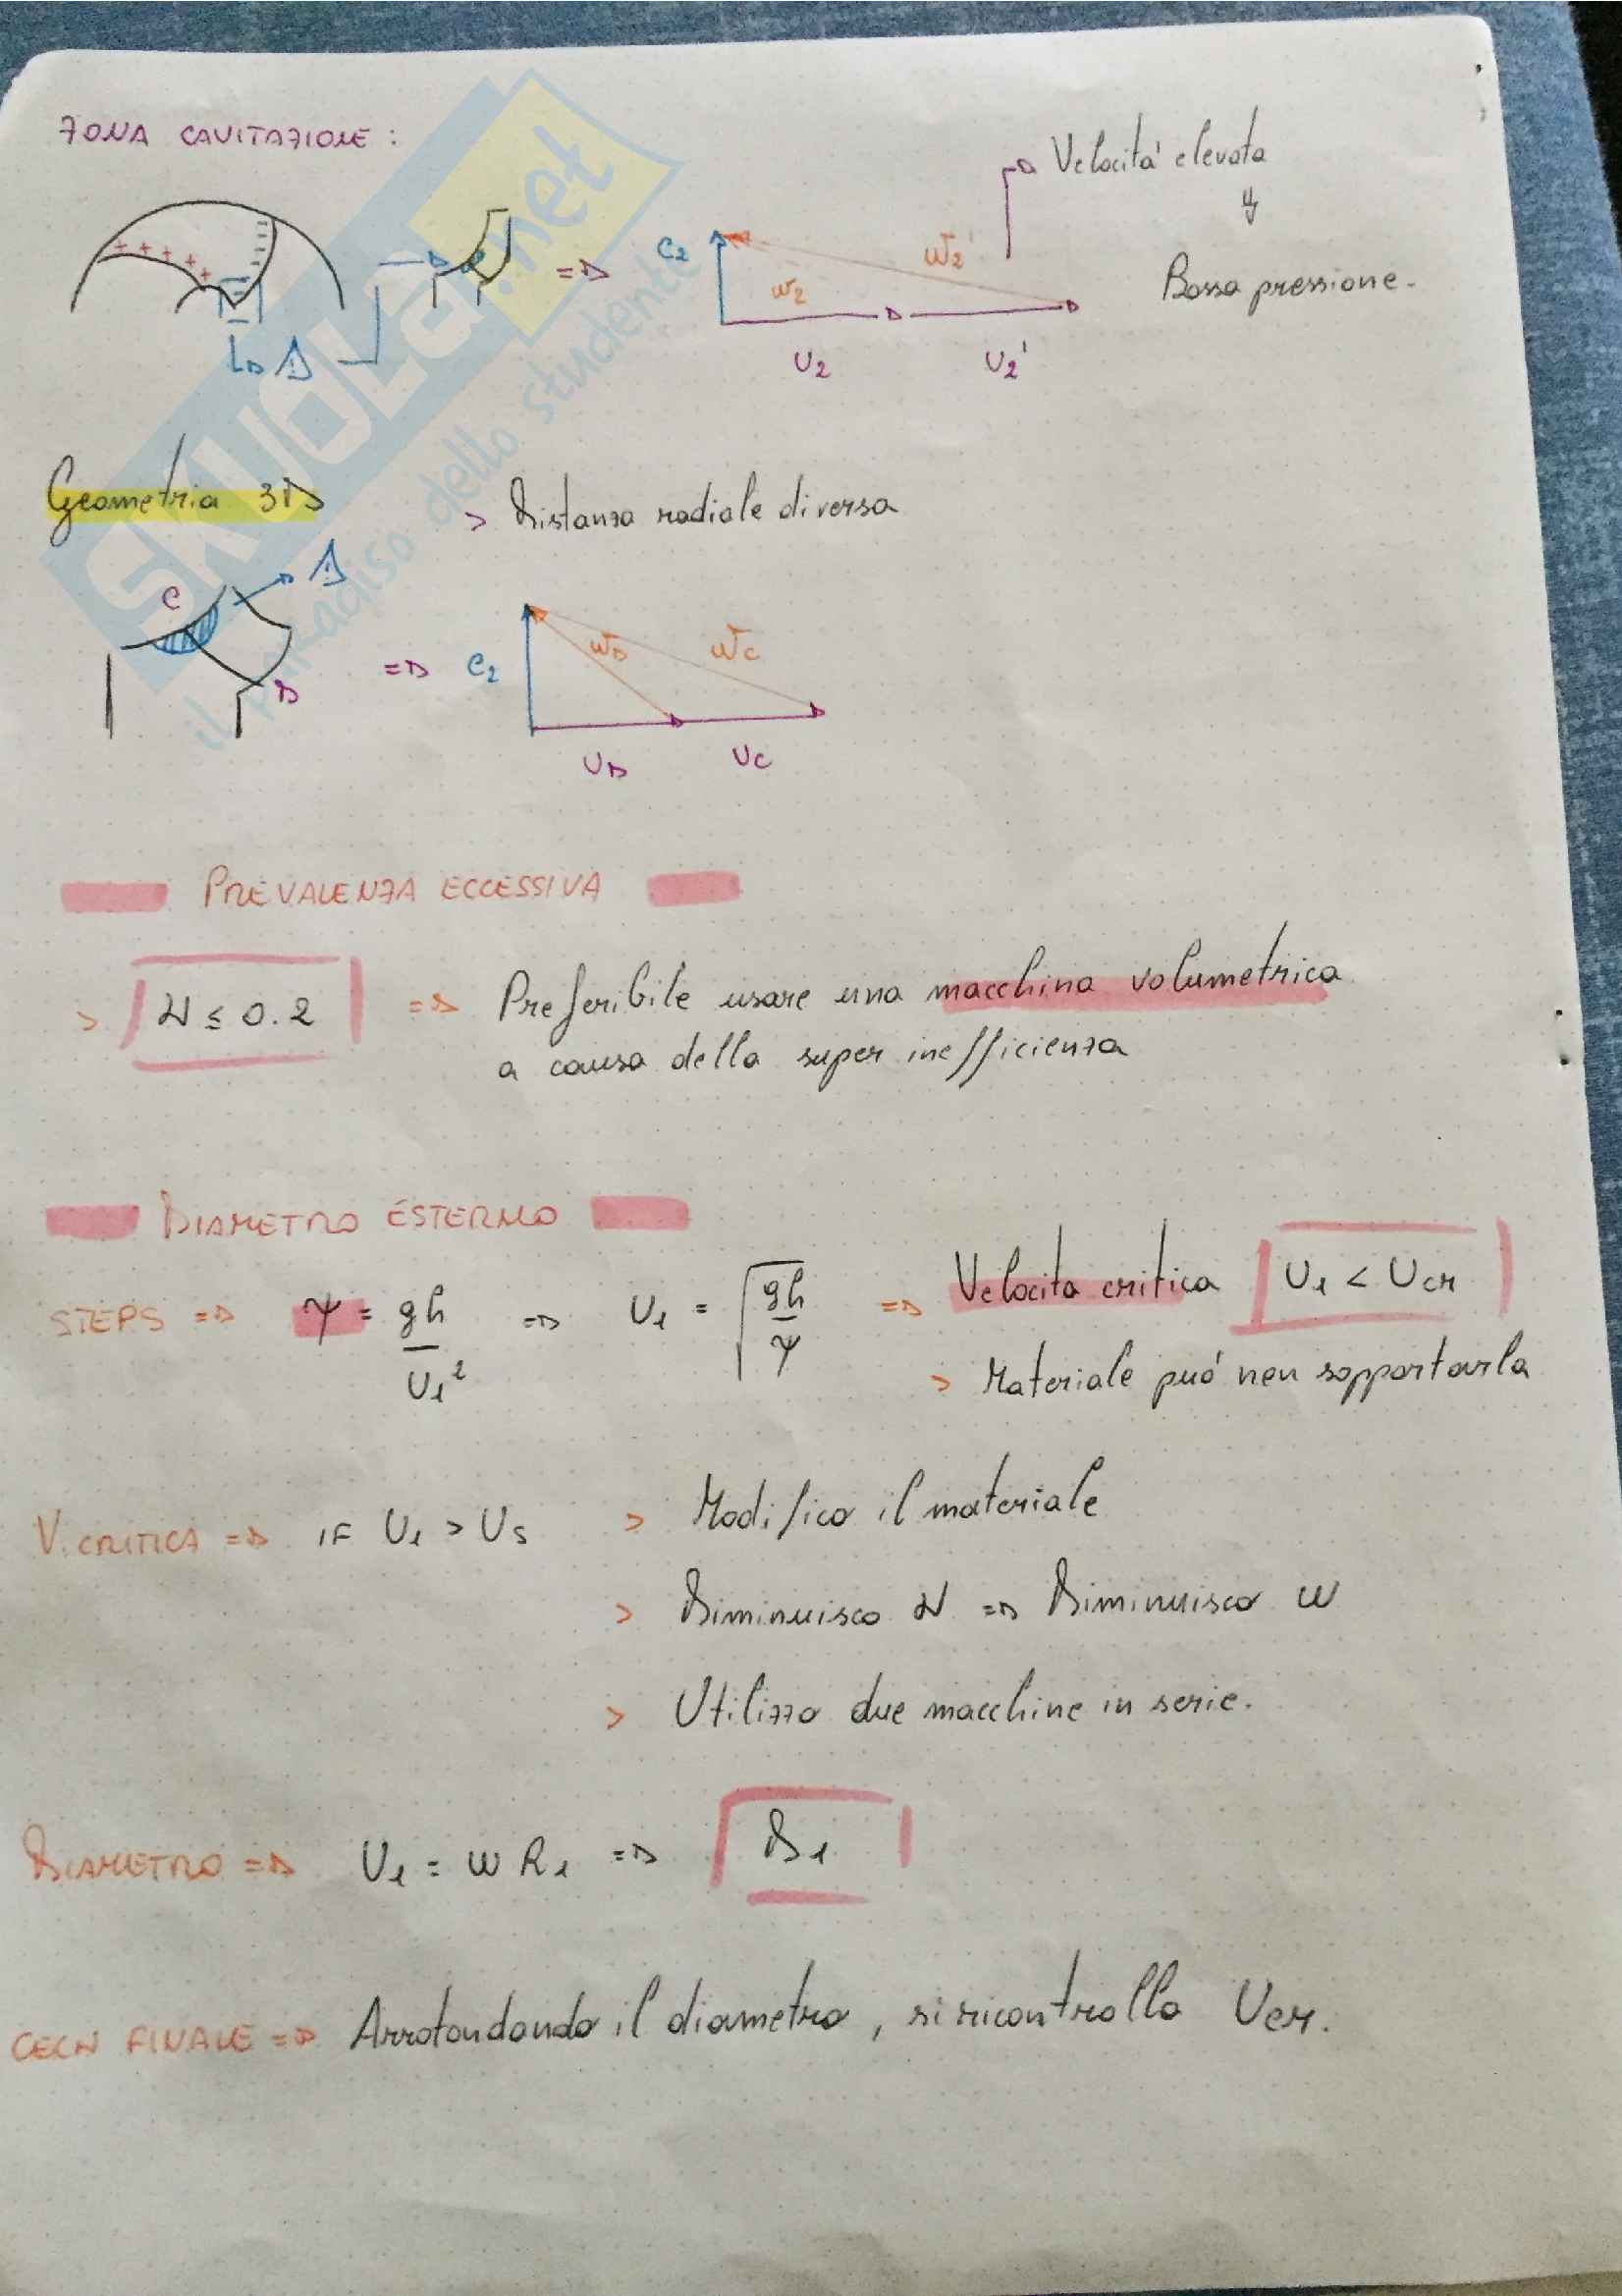 ZONA CAVITAZIONE:
Velocità elevata
Bassa pressione.
C2 W2 W2'
U2 U2'
Geometria 3D
> Distanza radiale diversa
C
D
=> C2 WD WC
UD UC
PREVALENZA ECCESSIVA
> N ≤ 0.2 => Preferibile usare una macchina volumetrica
a causa della super inefficienza
DIAMETRO ESTERNO
STEPS => ψ = gh/U1² => U1 = √(gh/ψ) => Velocità critica U1 < Ucr
> Materiale può non sopportarla
V. CRITICA => IF U1 > US > Modifico il materiale
> Diminuisco N => Diminuisco ω
> Utilizzo due macchine in serie.
DIAMETRO => U1 = ω R1 => D1
FINALE => Arrotondando il diametro, si ricontrolla Ucr.
SKUOLA.net
il paradiso dello studente